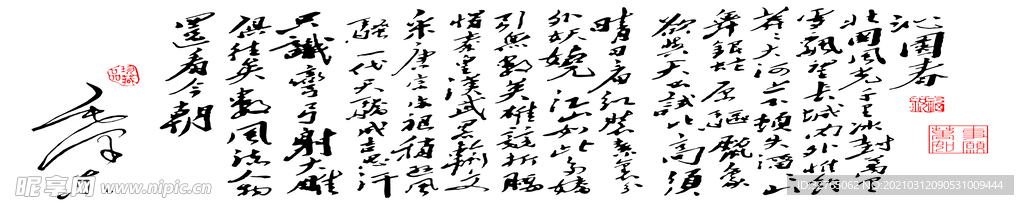 沁園春
北國風光千里冰封萬里
雪飄望長城內外惟餘
莽莽大河上下頓失滔滔山
舞銀蛇原驅臘象
欲與天公試比高須
晴日看紅裝素裹分
外妖嬈江山如此多嬌
引無數英雄競折腰
惜秦皇漢武略輸文
采唐宗宋祖稍遜風
騷一代天驕成吉思汗
只識彎弓射大雕
俱往矣數風流人物
還看今朝
毛澤東
昵图网 www.nipic.cn
NO:20210312090531009444